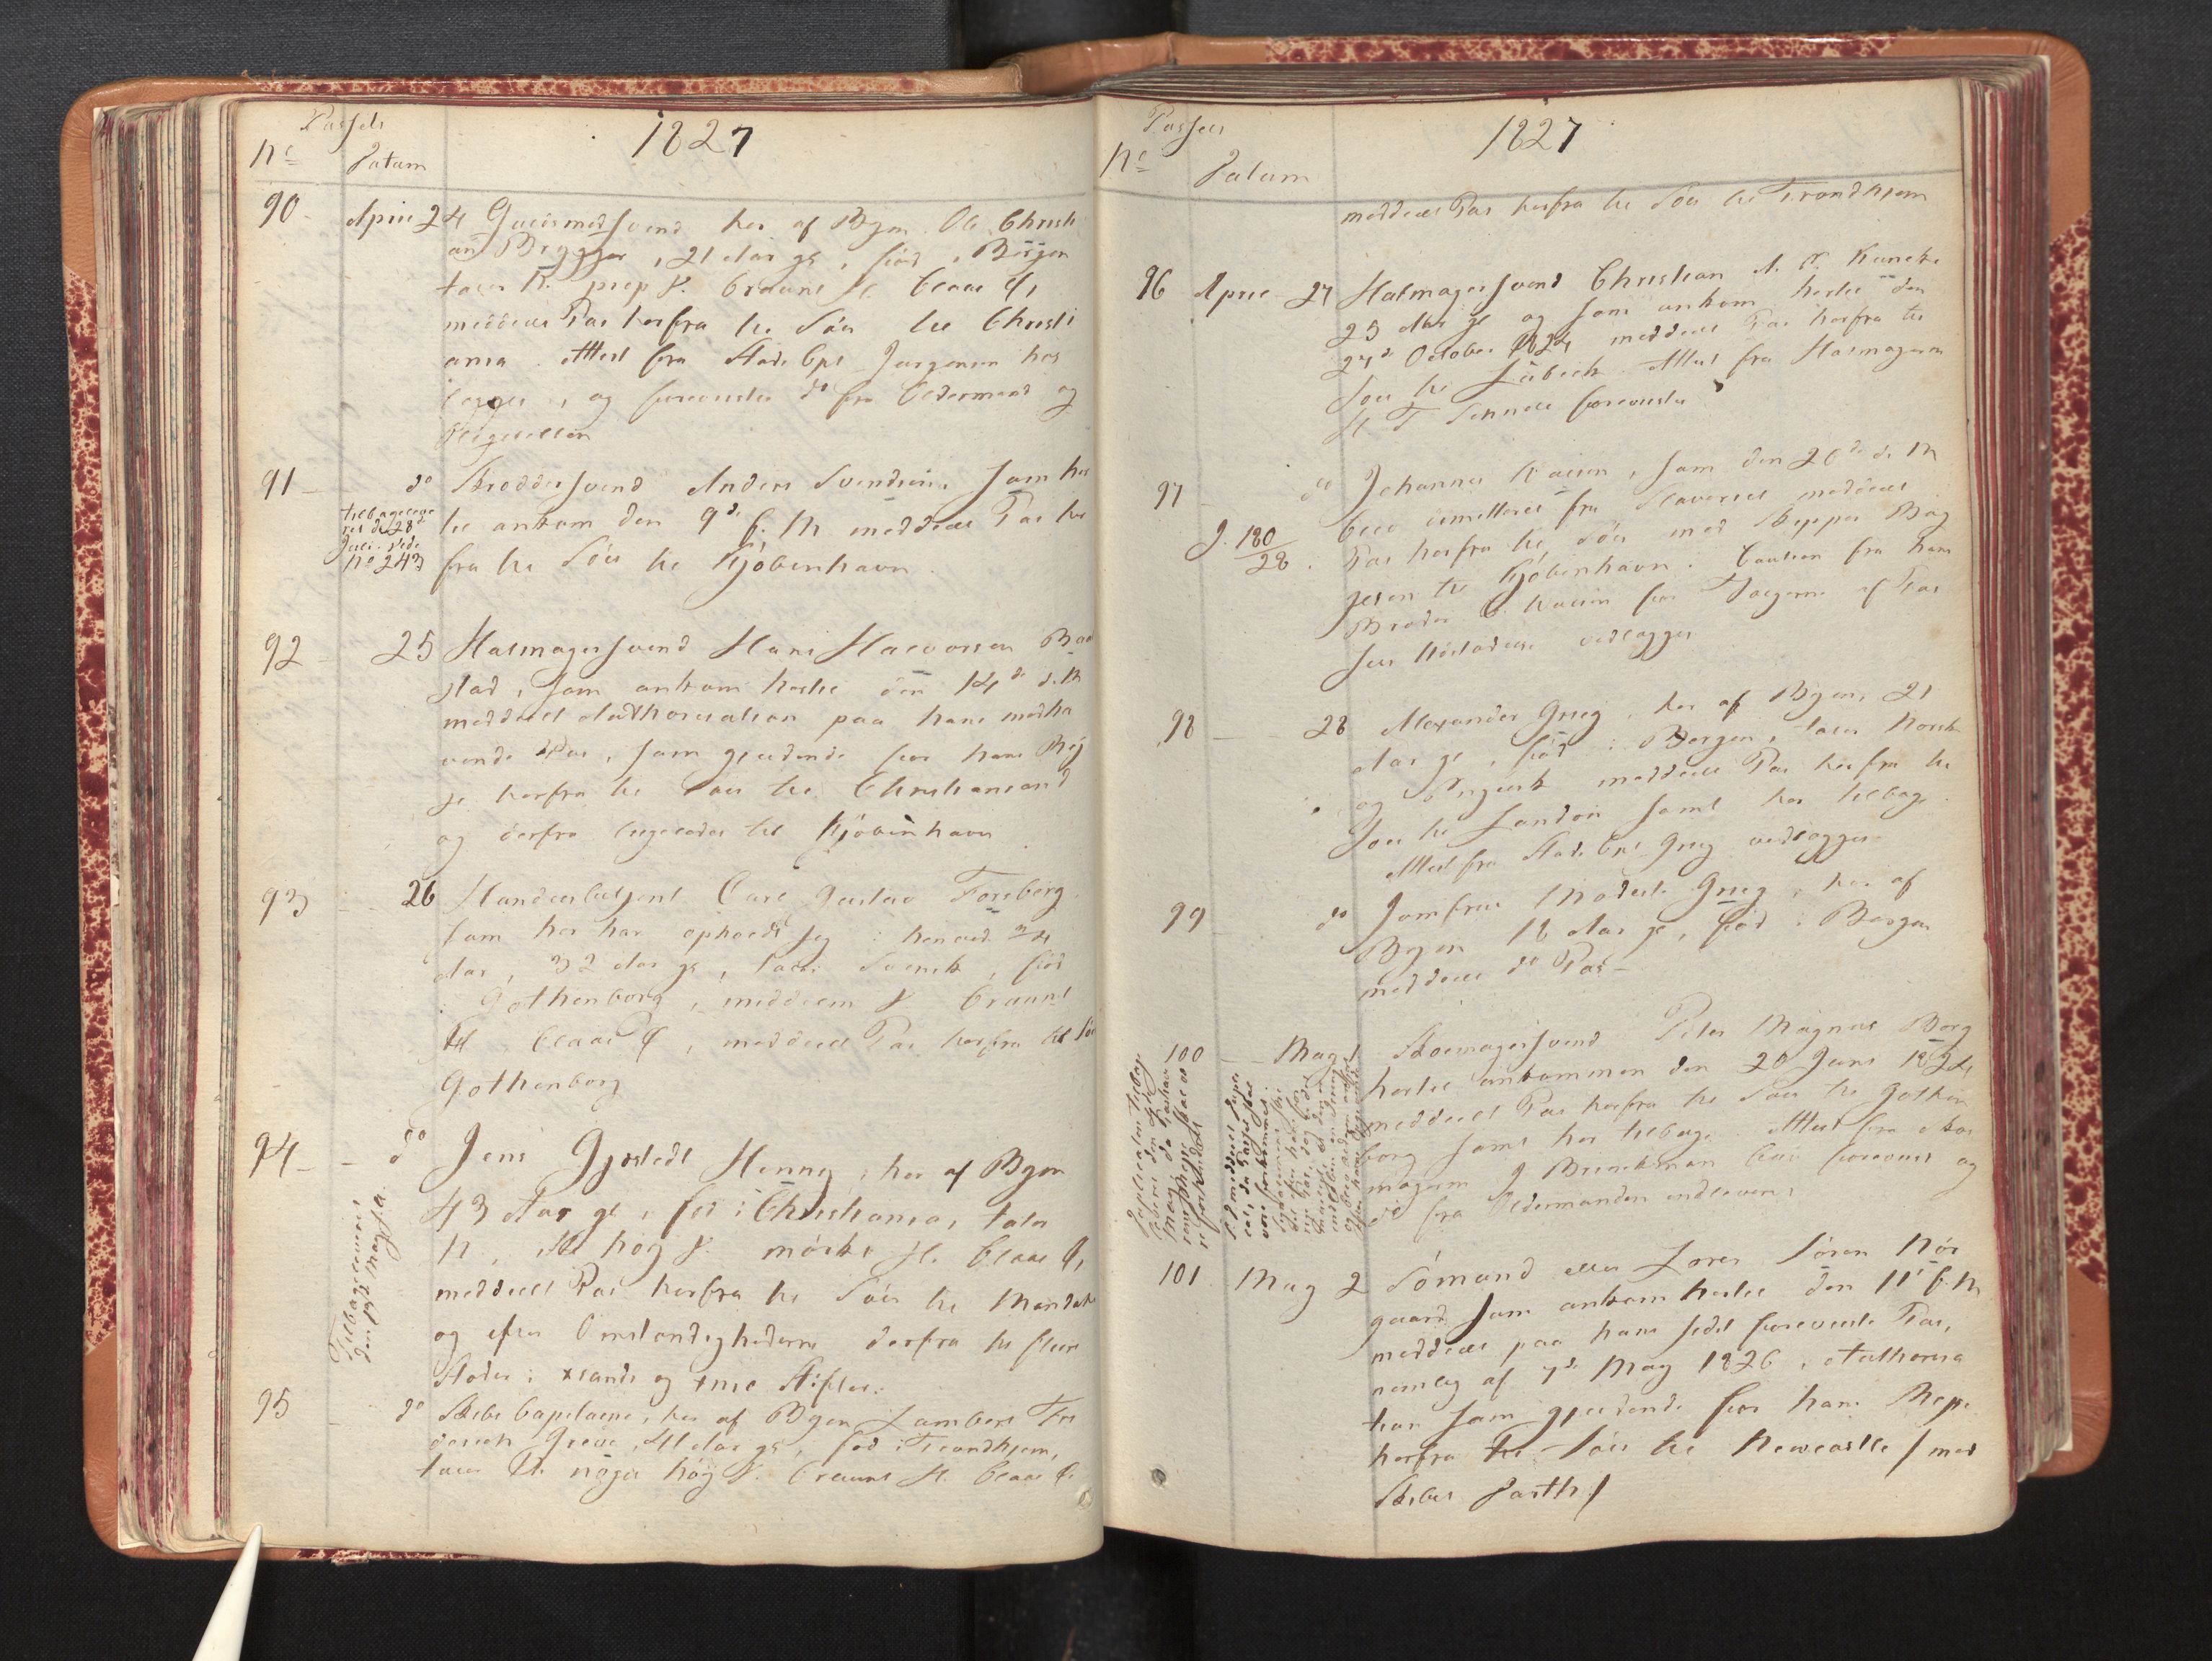 Passets
No
Datum
1827
90 April 24 Guldsmedsvend her af Byen Ole Christi
an Brygger, 21 Aar gl, fød i Bergen
taler N. prep V. bruunt H. blaae Ø,
meddeelt Pas herfra til Søes til Christi
ania Attest fra Stads Cpt Jürgensen her
lægges, og foreviste do fra Oldermand og
91 do Skreddersvend Anders Svendsen som her
til ankom den 9de f. M meddeelt Pas her
fra til Søes til Kjøbenhavn.
tilbageleve
ret d 28de
Juli. vide
No 243
92 25 Hatmagersvend Hans Halvorsen Baa
stad, som ankom hertil den 14de d. M
meddeelt Authorisation paa hans medha
vende Pas, som gjeldende for hans Rej
se herfra til Søes til Christiansand
og derfra ligeledes til Kjøbenhavn
93 26 Handelsbetjent Carl Gustav Forsberg
som her har opholdt sig i henved 3/4
Aar, 32 Aar gl, taler Svensk, fød
i Gothenborg, middelm V. bruunt
H. blaae Ø, meddeelt Pas herfra til Søes
Gothenborg
94 do Jens Gjørstedt Henney, her af Byen
43 Aar gl, fød i Christiania, taler
N, høy V. mørkt H. blaae Ø,
meddeelt Pas herfra til Søes til Mandal
og efter Omstændighederne derfra til flere
Stæder i xsands og xnie Stifter.
Tilbageleveret
den 19de May s. a.
95 do Skibs Capitaine, her af Byen Lambert Fre
derich Greve, 41 Aar gl, fød i Trondhjem,
taler N. noget høy V. bruunt H. blaae Ø
Passets
No
Datum
1827
meddeelt Pas herfra til Søes til Trondhjem
96 April 27 Hatmagersvend Christian A. F. Kuncke
25 Aar gl og som ankom hertil den
27de October 1824 meddeelt Pas herfra til
Søes til Lübeck Attest fra Hatmagerm
H T Sennell foreviste
97 do Johannes Kaien, som den 20de d. M
blev dimitteret fra Slaveriet meddeelt
J. 180/28. Pas herfra til Søes med Skipper Bag
gesen til Kjøbenhavn. Caution fra hans
Broder Kaien for Følgerne af Pas
sets vedlægges
98 28 Alexander Grieg, her af Byen, 21
Aar gl, fød i Bergen, taler Norsk
og Engelsk meddeelt Pas herfra til
Søes til London samt her tilbage.
Attest fra Stads Cpt Grieg vedlægges
99 do Jomfrue Modeste Grieg, her af
Byen 18 Aar gl, fød i Bergen
meddeelt do Pas
100 May 1 Skoemagersvend Peter Magnus Borg
hertil ankommen den 20 Juni 1824
meddeelt Pas herfra til Søes til Gothen
borg samt her tilbage. Attest fra Skoe
magerm J Brinckman blev forevist og
do fra Oldermanden indleveret
101 May 2 Sømand eller Lods Søren Nør
gaard som ankom hertil den 11te f. M
meddeelt paa hans sidst foreviste Pas,
nemlig af 7de May 1826, Authorisa
tion som gjeldende for hans Reise
herfra til Søes til Newcastle / med
Skibet Jorth /